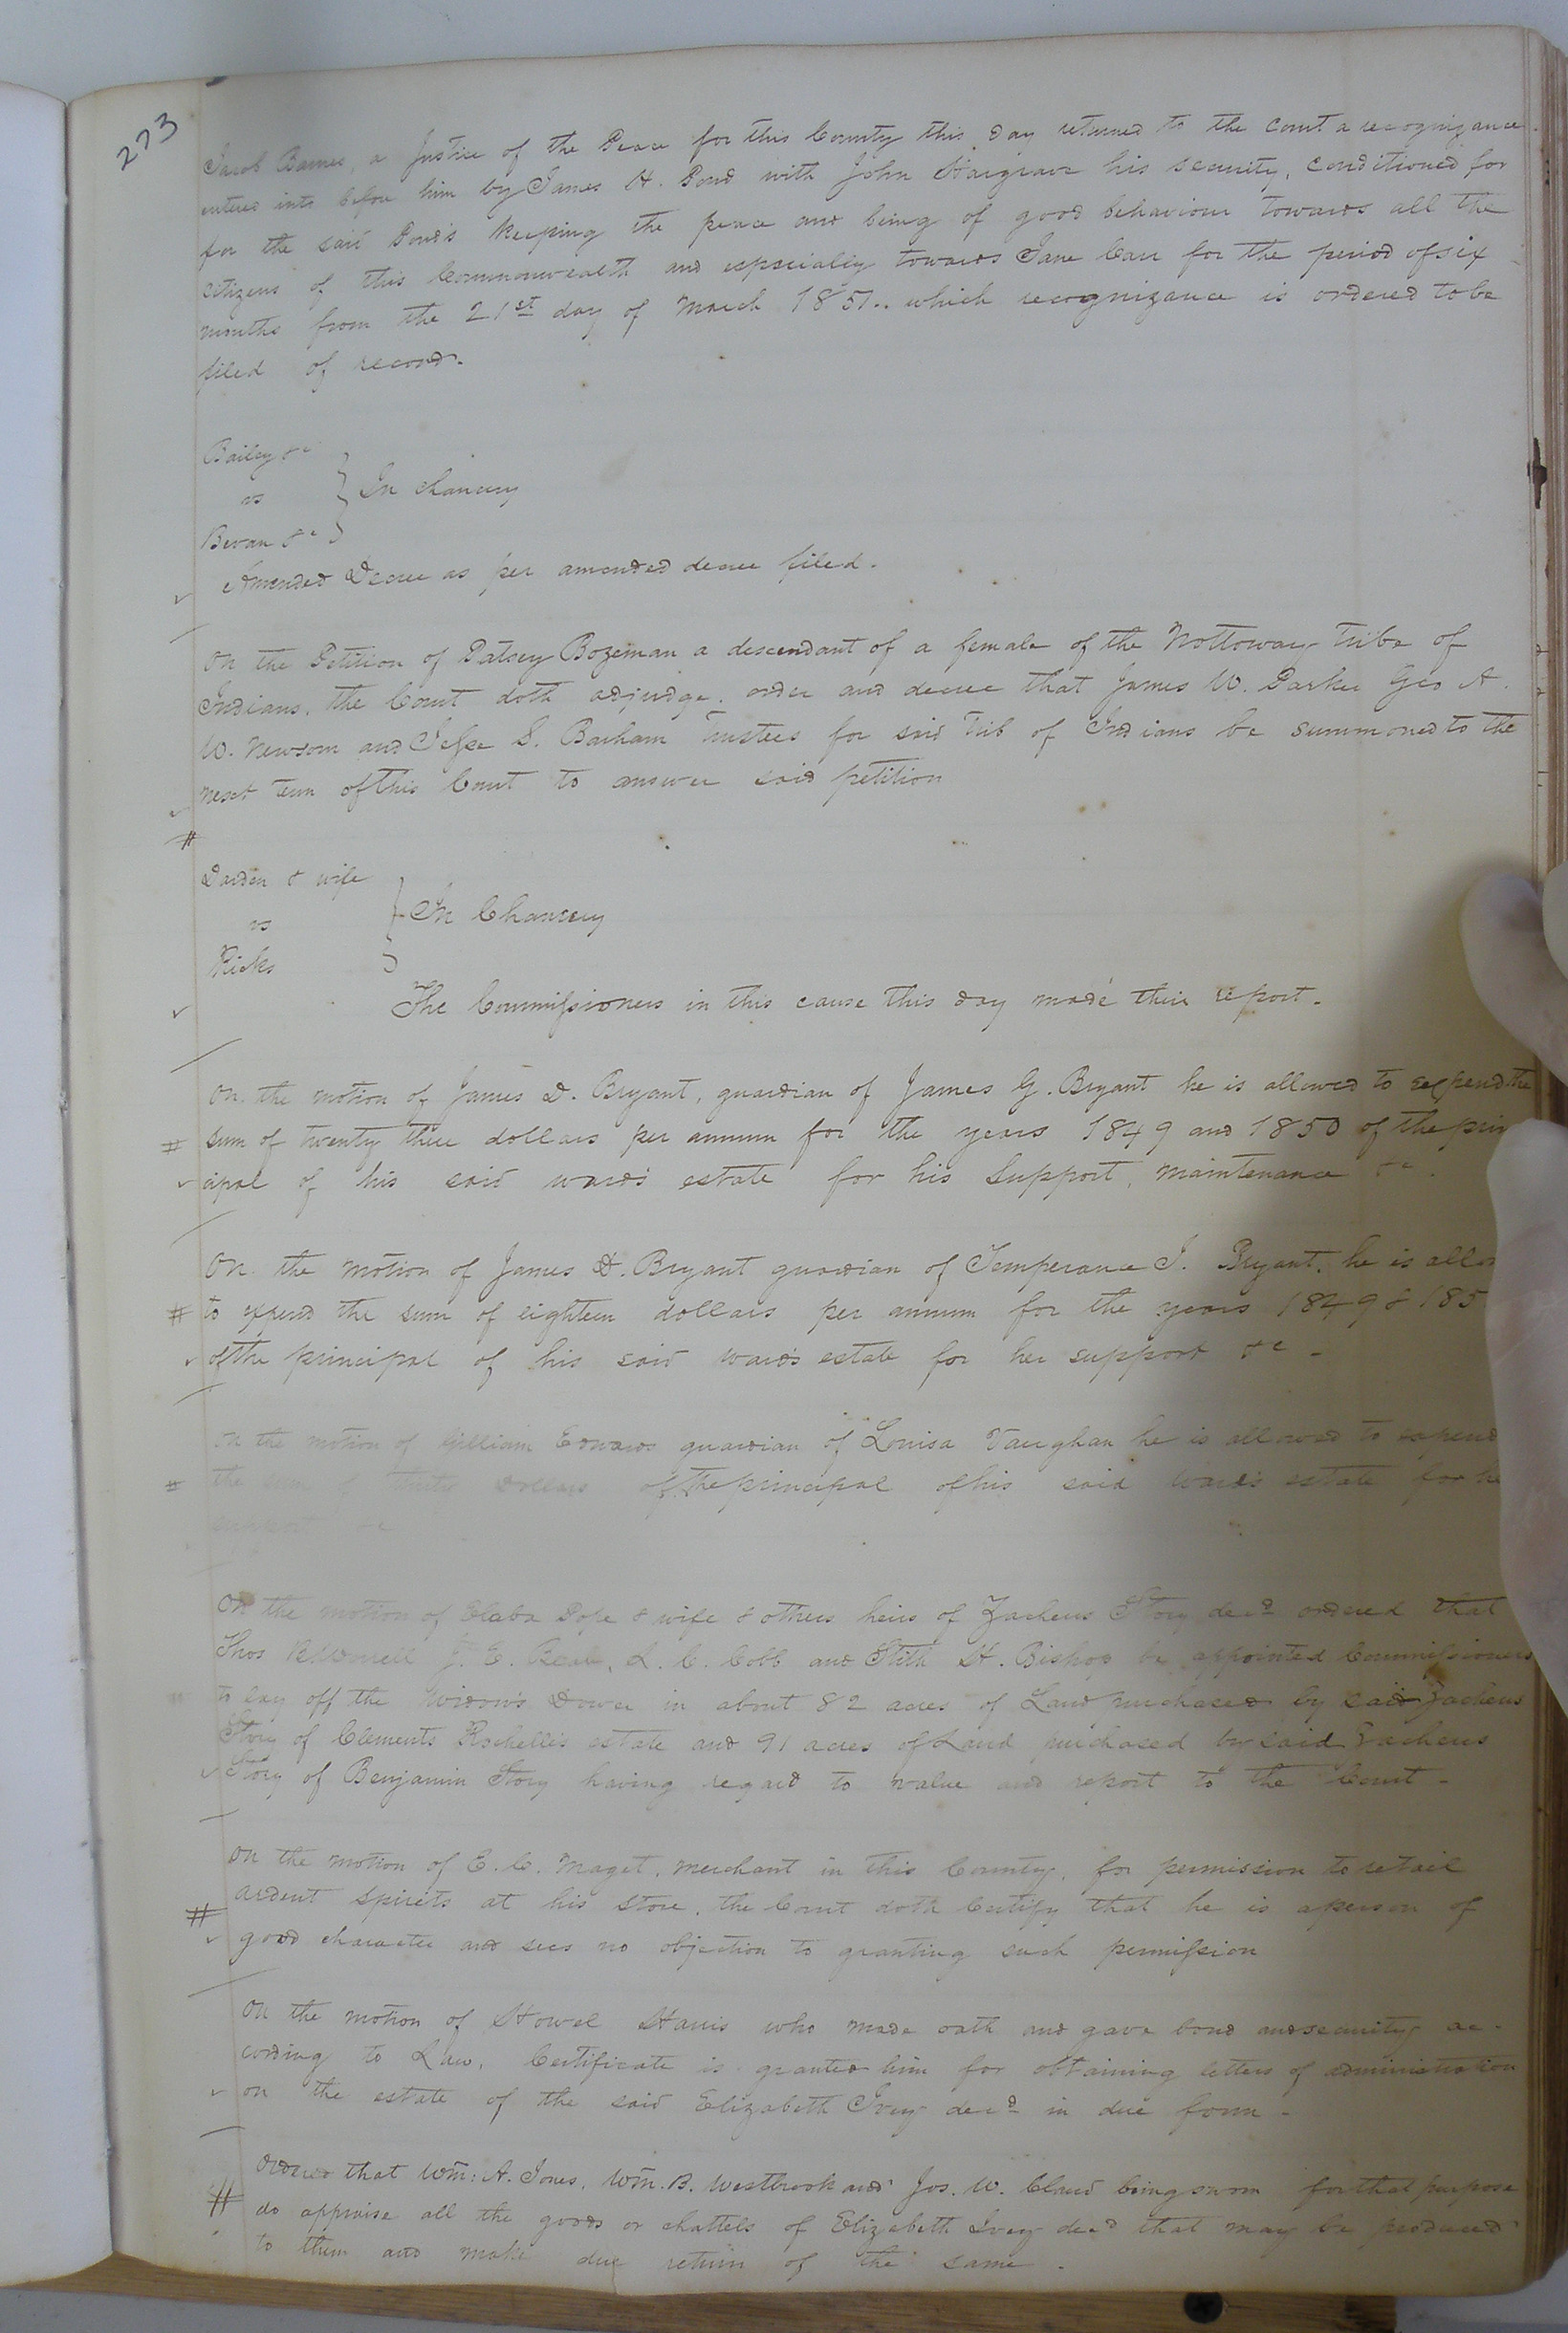 273
Jacob Barnes, a Justice of the Peace for this County this day returned to the court a recognizance
entered into before him by James H. Pond with John Hargrave his security, conditioned for
for the said Pond's keeping the peace and being of good behaviour towards all the
citizens of this Commonwealth and especially towards Jane Carr for the period of six
months from the 21st day of March 1851.. which recognizance is ordered to be
filed of record.
Bailey &c
vs } In chancery
Bevan &c
Amended Decree as per amended decree filed.
On the Petition of Patsey Bozeman a descendant of a female of the Nottoway Tribe of
Indians. the Court doth adjudge. order and decree that James W. Parker Geo A.
W. Newsom and Jesse S. Barham Trustees for said Trib of Indians be summoned to the
next term of this Court to answer said petition
#
Darden & wife
vs } In Chancery
Ricks
The Commissioners in this cause this day made their report.
On the motion of James D. Bryant, guardian of James G. Bryant he is allowed to expend the
# sum of twenty three dollars per annum for the years 1849 and 1850 of the prin
cipal of his said ward's estate for his support, maintenance &c.
On the motion of James D. Bryant guardian of Temperance J. Bryant. he is allow
# to expend the sum of eighteen dollars per annum for the years 1849 & 185
of the principal of his said ward's estate for her support &c -
On the motion of William Edwards guardian of Louisa Vaughan he is allowed to expend
# the sum of thirty Dollars of the principal of his said ward's estate for he
support &c
On the motion of Pope & wife & others heirs of Zacheus Story decd ordered that
Thos J. E. Beale, L. C. Cobb and Stith H. Bishop be appointed Commissioners
to lay off the widow's Dower in about 82 acres of Land purchased by said Zacheus
Story of Clements Rochelle's estate and 91 acres of Land purchased by said Zacheus
Story of Benjamin Story having regard to value and report to the Court -
On the motion of E. C. Maget. merchant in this County. for permission to retail
# ardent spirits at his store. the Court doth Certify that he is a person of
good character and sees no objection to granting such permission
On the motion of Howel Harris who made oath and gave bond and security ac-
cording to Law. Certificate is granted him for obtaining letters of administration
on the estate of the said Elizabeth Ivey decd in due form -
Ordered that Wm: A. Jones, Wm. B. Westbrook and Jos. W. Claud being sworn for that purpose
# do appraise all the goods or chattels of Elizabeth Ivey decd that may be produced
to them and make due return of the same.